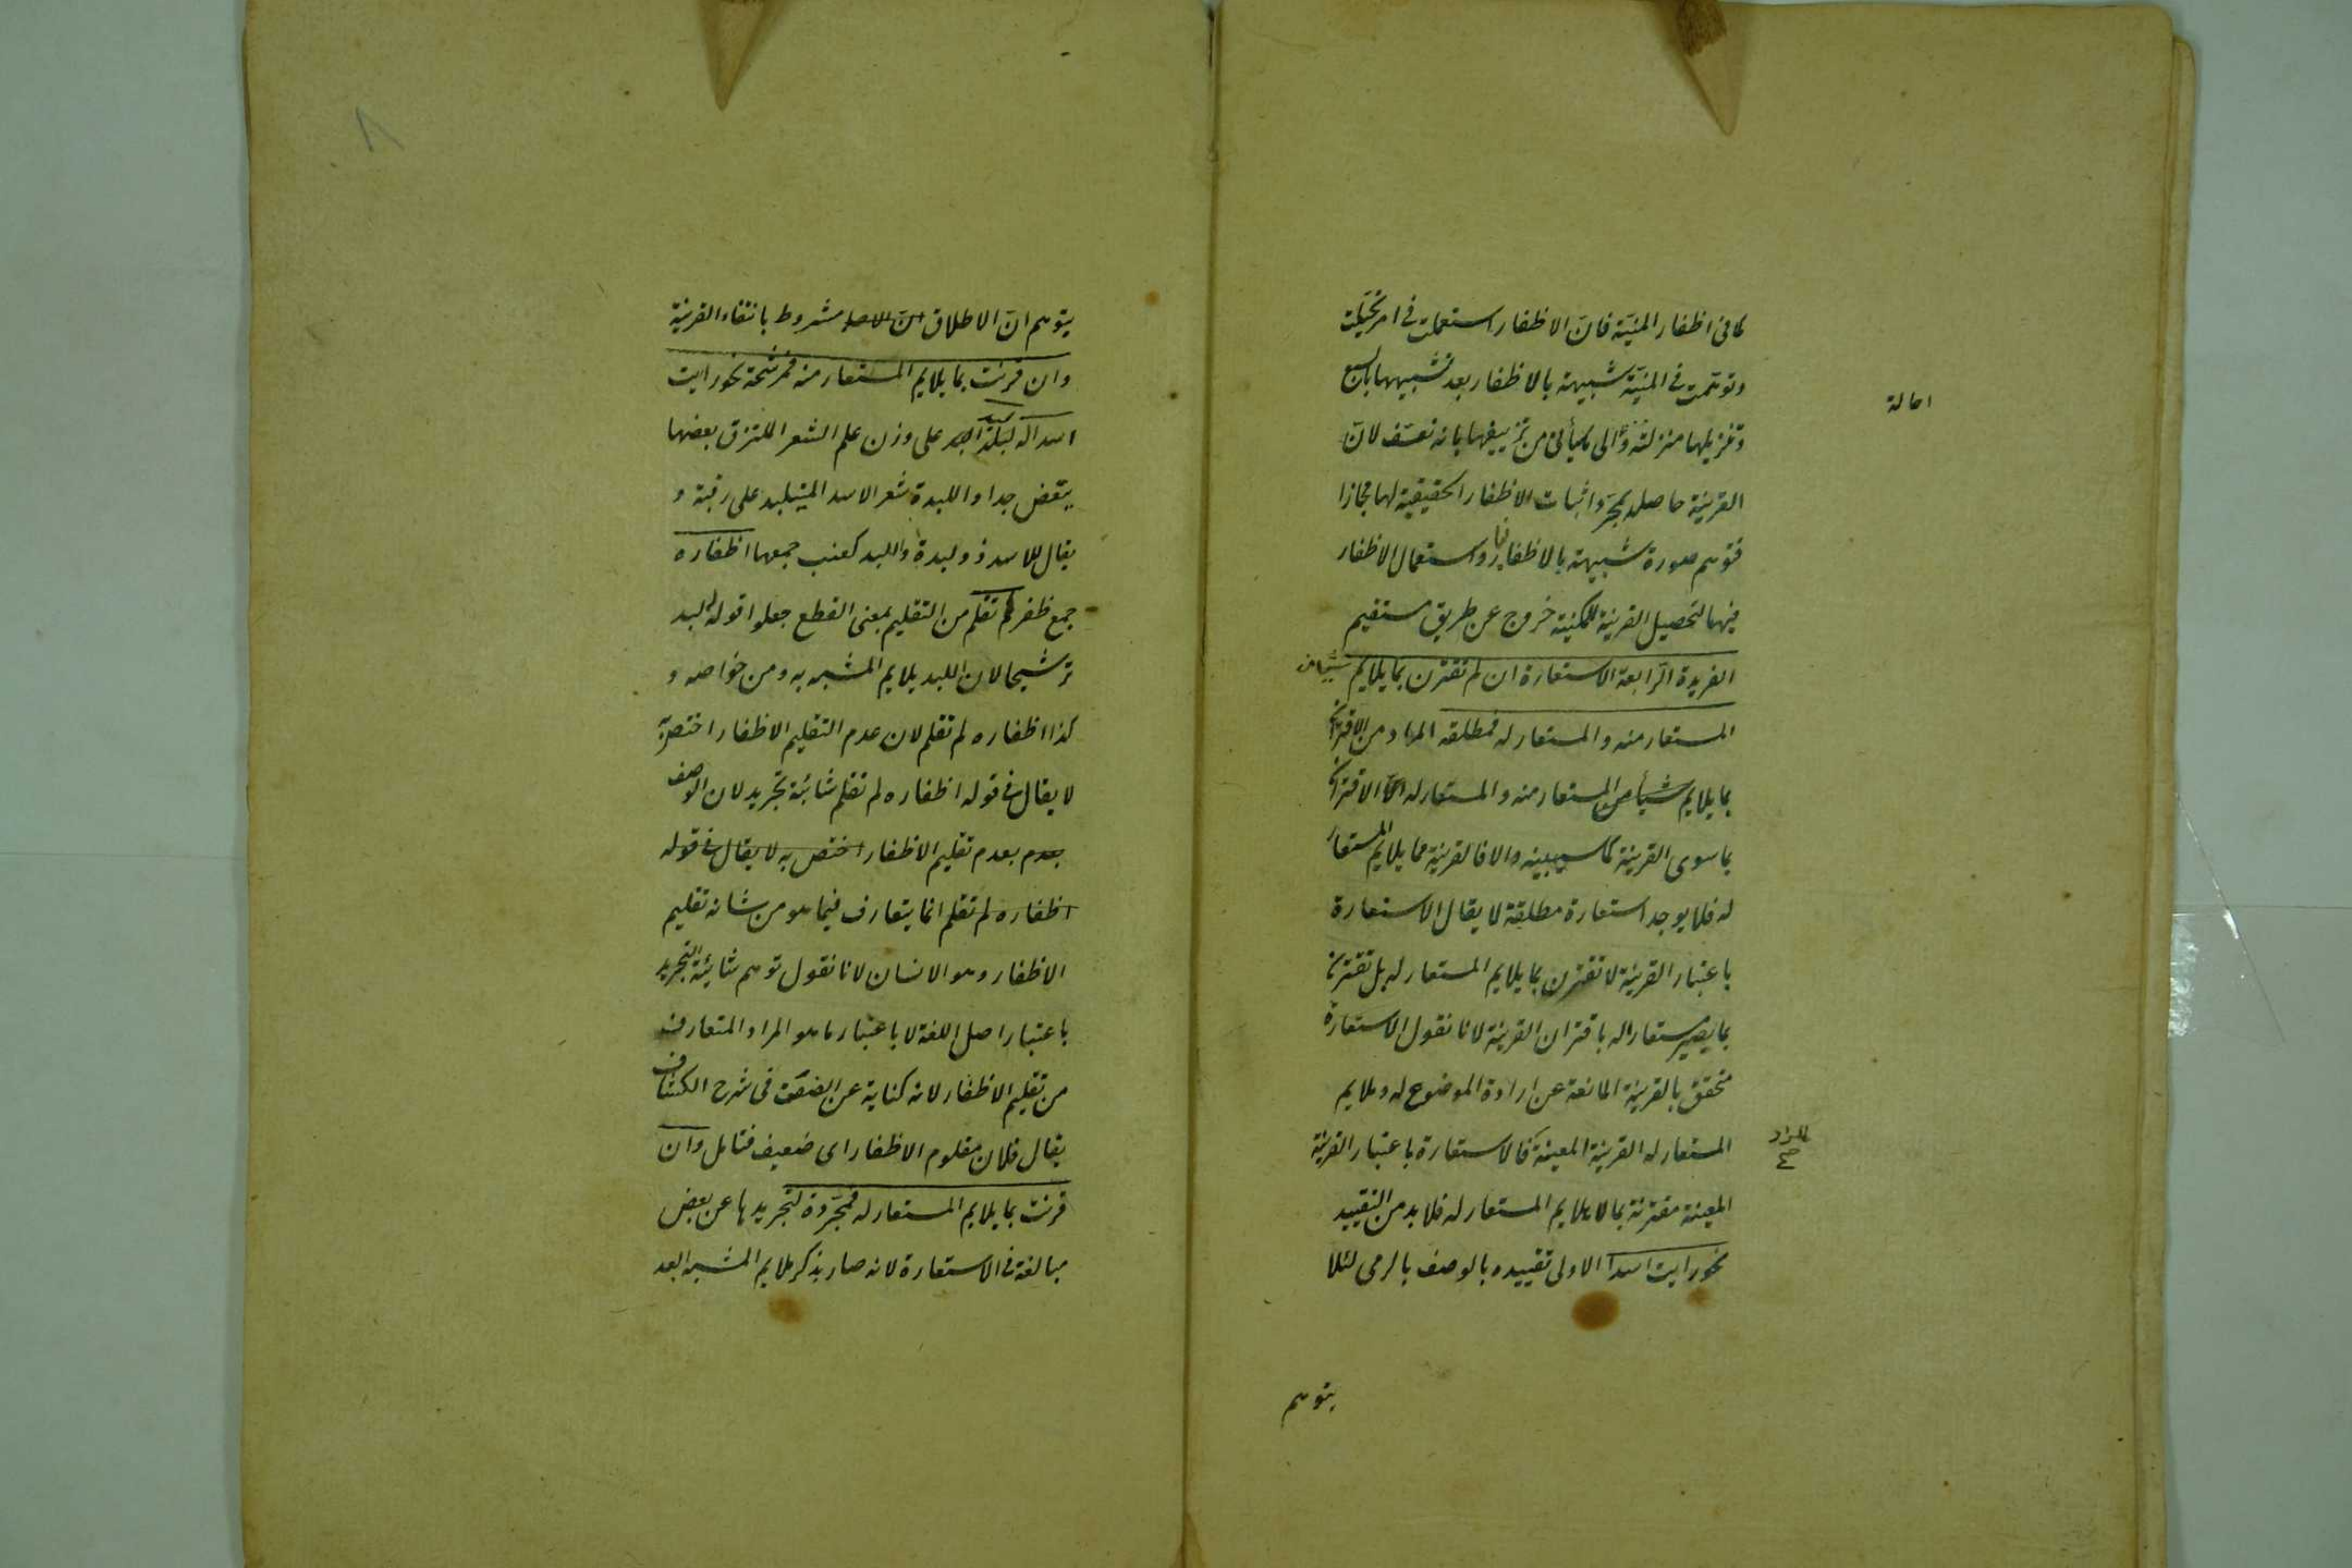 كما في اظفار المنيّة فانّ الاظفار استعملت في امر تخيّلت
وتوهّمت في المنيّة شبيهة بالاظفار بعد تشبيهها بالسبع
وتنزيلها منزلته من تزييفها بانه تعسّف لانّ
القرينة حاصلة بمجرّد اثبات الاظفار الحقيقية لها مجازا
فتوهم صورة شبيهة بالاظفار واستعمال الاظفار
فيها لتحصيل القرينة للمكنية خروج عن طريق مستقيم
الفريدة الرّابعة الاستعارة ان لم تقترن بما يلايم شيئا من
المستعار منه والمستعار له فمطلقة المراد من الاقتران
بما يلايم شيأ من المستعار منه والمستعار له الاقتران
بما سوى القرينة كما سيبينه والا فالقرينة مما يلايم المستعار
له فلا يوجد استعارة مطلقة لا يقال الاستعارة
باعتبار القرينة لا تقترن بما يلايم المستعار له بل تقترن
بما يصير مستعارا له باقتران القرينة لانا نقول الاستعارة
تحقق بالقرينة المانعة عن ارادة الموضوع له وملايم
المستعار له القرينة المعينة فالاستعارة باعتبار القرينة
المعينة مقترنة بما لا يلايم المستعار له فلا بد من التقييد
نحو رايت اسدا الاولى تقييده بالوصف بالرمى لئلا
يتوهم
احالة
يتوهم انّ الاطلاق مشروط بانتفاء القرينة
وان قرنت بما يلايم المستعار منه فمرشحة نحو رايت
اسدا له لبد على وزن علم الشعر الملتزق بعضها
ببعض جدا واللبدة شعر الاسد المتلبد على رقبته و
يقال للاسد ذو لبدة واللبد كعنب جمعها اظفاره
جمع ظفر لم تقلم من التقليم بمعنى القطع جعلوا قوله له لبد
ترشيحا لان اللبد يلايم المشبه به ومن خواصه و
كذا اظفاره لم تقلم لان عدم التقليم الاظفار اختص به
لا يقال في قوله اظفاره لم تقلم شائبة تجريد لان الوصف
بعدم بعدم تقليم الاظفار اختص به لا يقال في قوله
اظفاره لم تقلم انما يتعارف فيما هو من شانه تقليم
الاظفار وهو الانسان لانا نقول توهم شائبة التجريد
باعتبار اصل اللغة لا باعتبار ما هو المراد المتعارف
من تقليم الاظفار لانه كناية عن الضعف في شرح الكشاف
يقال فلان مقلوم الاظفار اى ضعيف فتامل وان
قرنت بما يلايم المستعار له فمجرّدة لتجريدها عن بعض
مبالغة في الاستعارة لانه صار بذكر ملايم المشبه ابعد